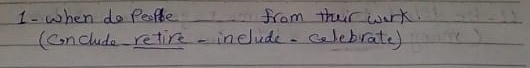 1- When do Peofle from their work.
(Conclude - retire - include - celebrate)